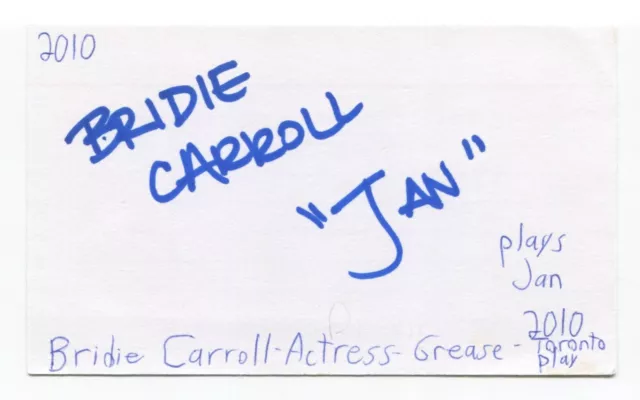 2010
BRIDIE
CARROLL
"JAN"
plays
Jan
2010
Bridie Carroll-Actress-Grease-Toronto
play